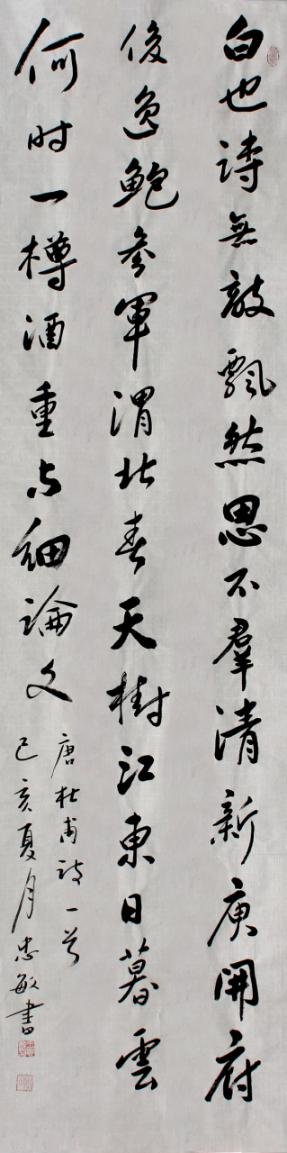 白也詩無敵飄然思不羣清新庾開府
俊逸鮑參軍渭北春天樹江東日暮雲
何时一樽酒重与细論文
唐杜甫诗一首
己亥夏月忠敏書